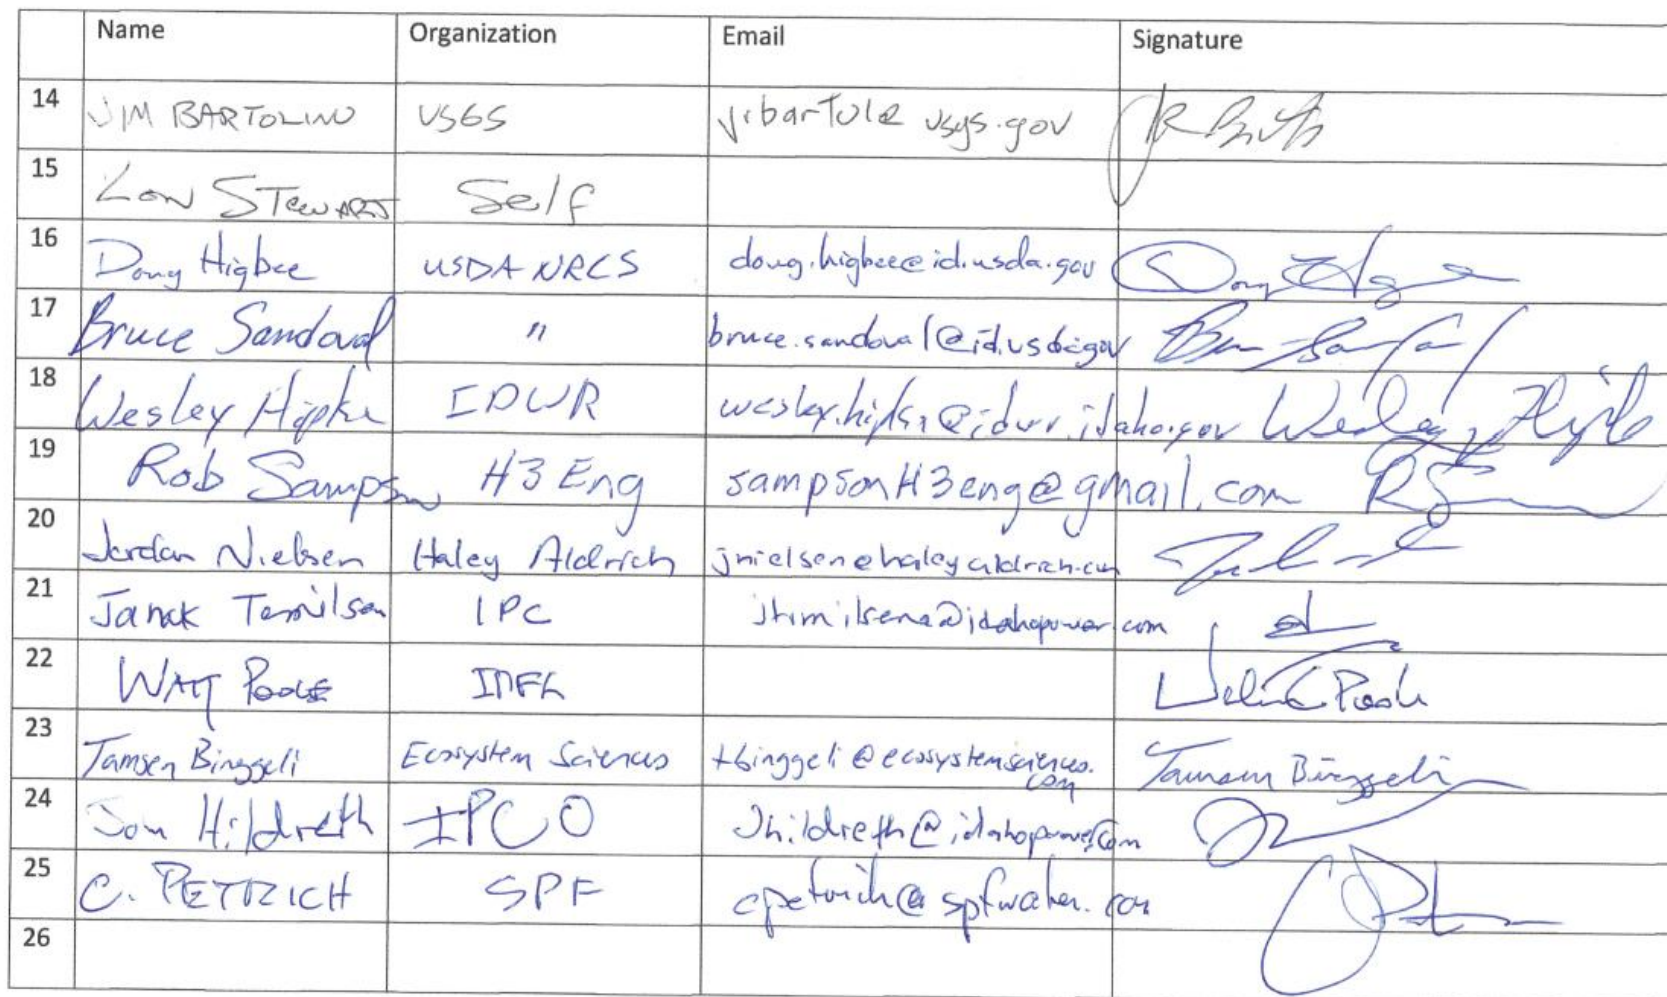 Name Organization Email Signature
14 JIM BARTOLINO USGS jrbartol@usgs.gov
15 Lon Stewart Self
16 Doug Higbee USDA NRCS doug.higbee@id.usda.gov Doug
17 Bruce Sandoval " bruce.sandoval@id.usda.gov
18 Wesley Hipke IDWR wesley.hipke@idwr.idaho.gov Wesley Hipke
19 Rob Sampson H3 Eng sampsonH3eng@gmail.com
20 Jordan Nielsen Haley Aldrich jnielsen@haleyaldrich.com
21 IPC
22 Poole
23 Tamsen Binggeli Ecosystem Sciences tbinggeli@ecosystemsciences.
com Tamsen Binggeli
24 Jon Hildreth IPCO Jhildreth@idahopower.com
25 C. PETRICH SPF cpetrich@spfwater.com
26